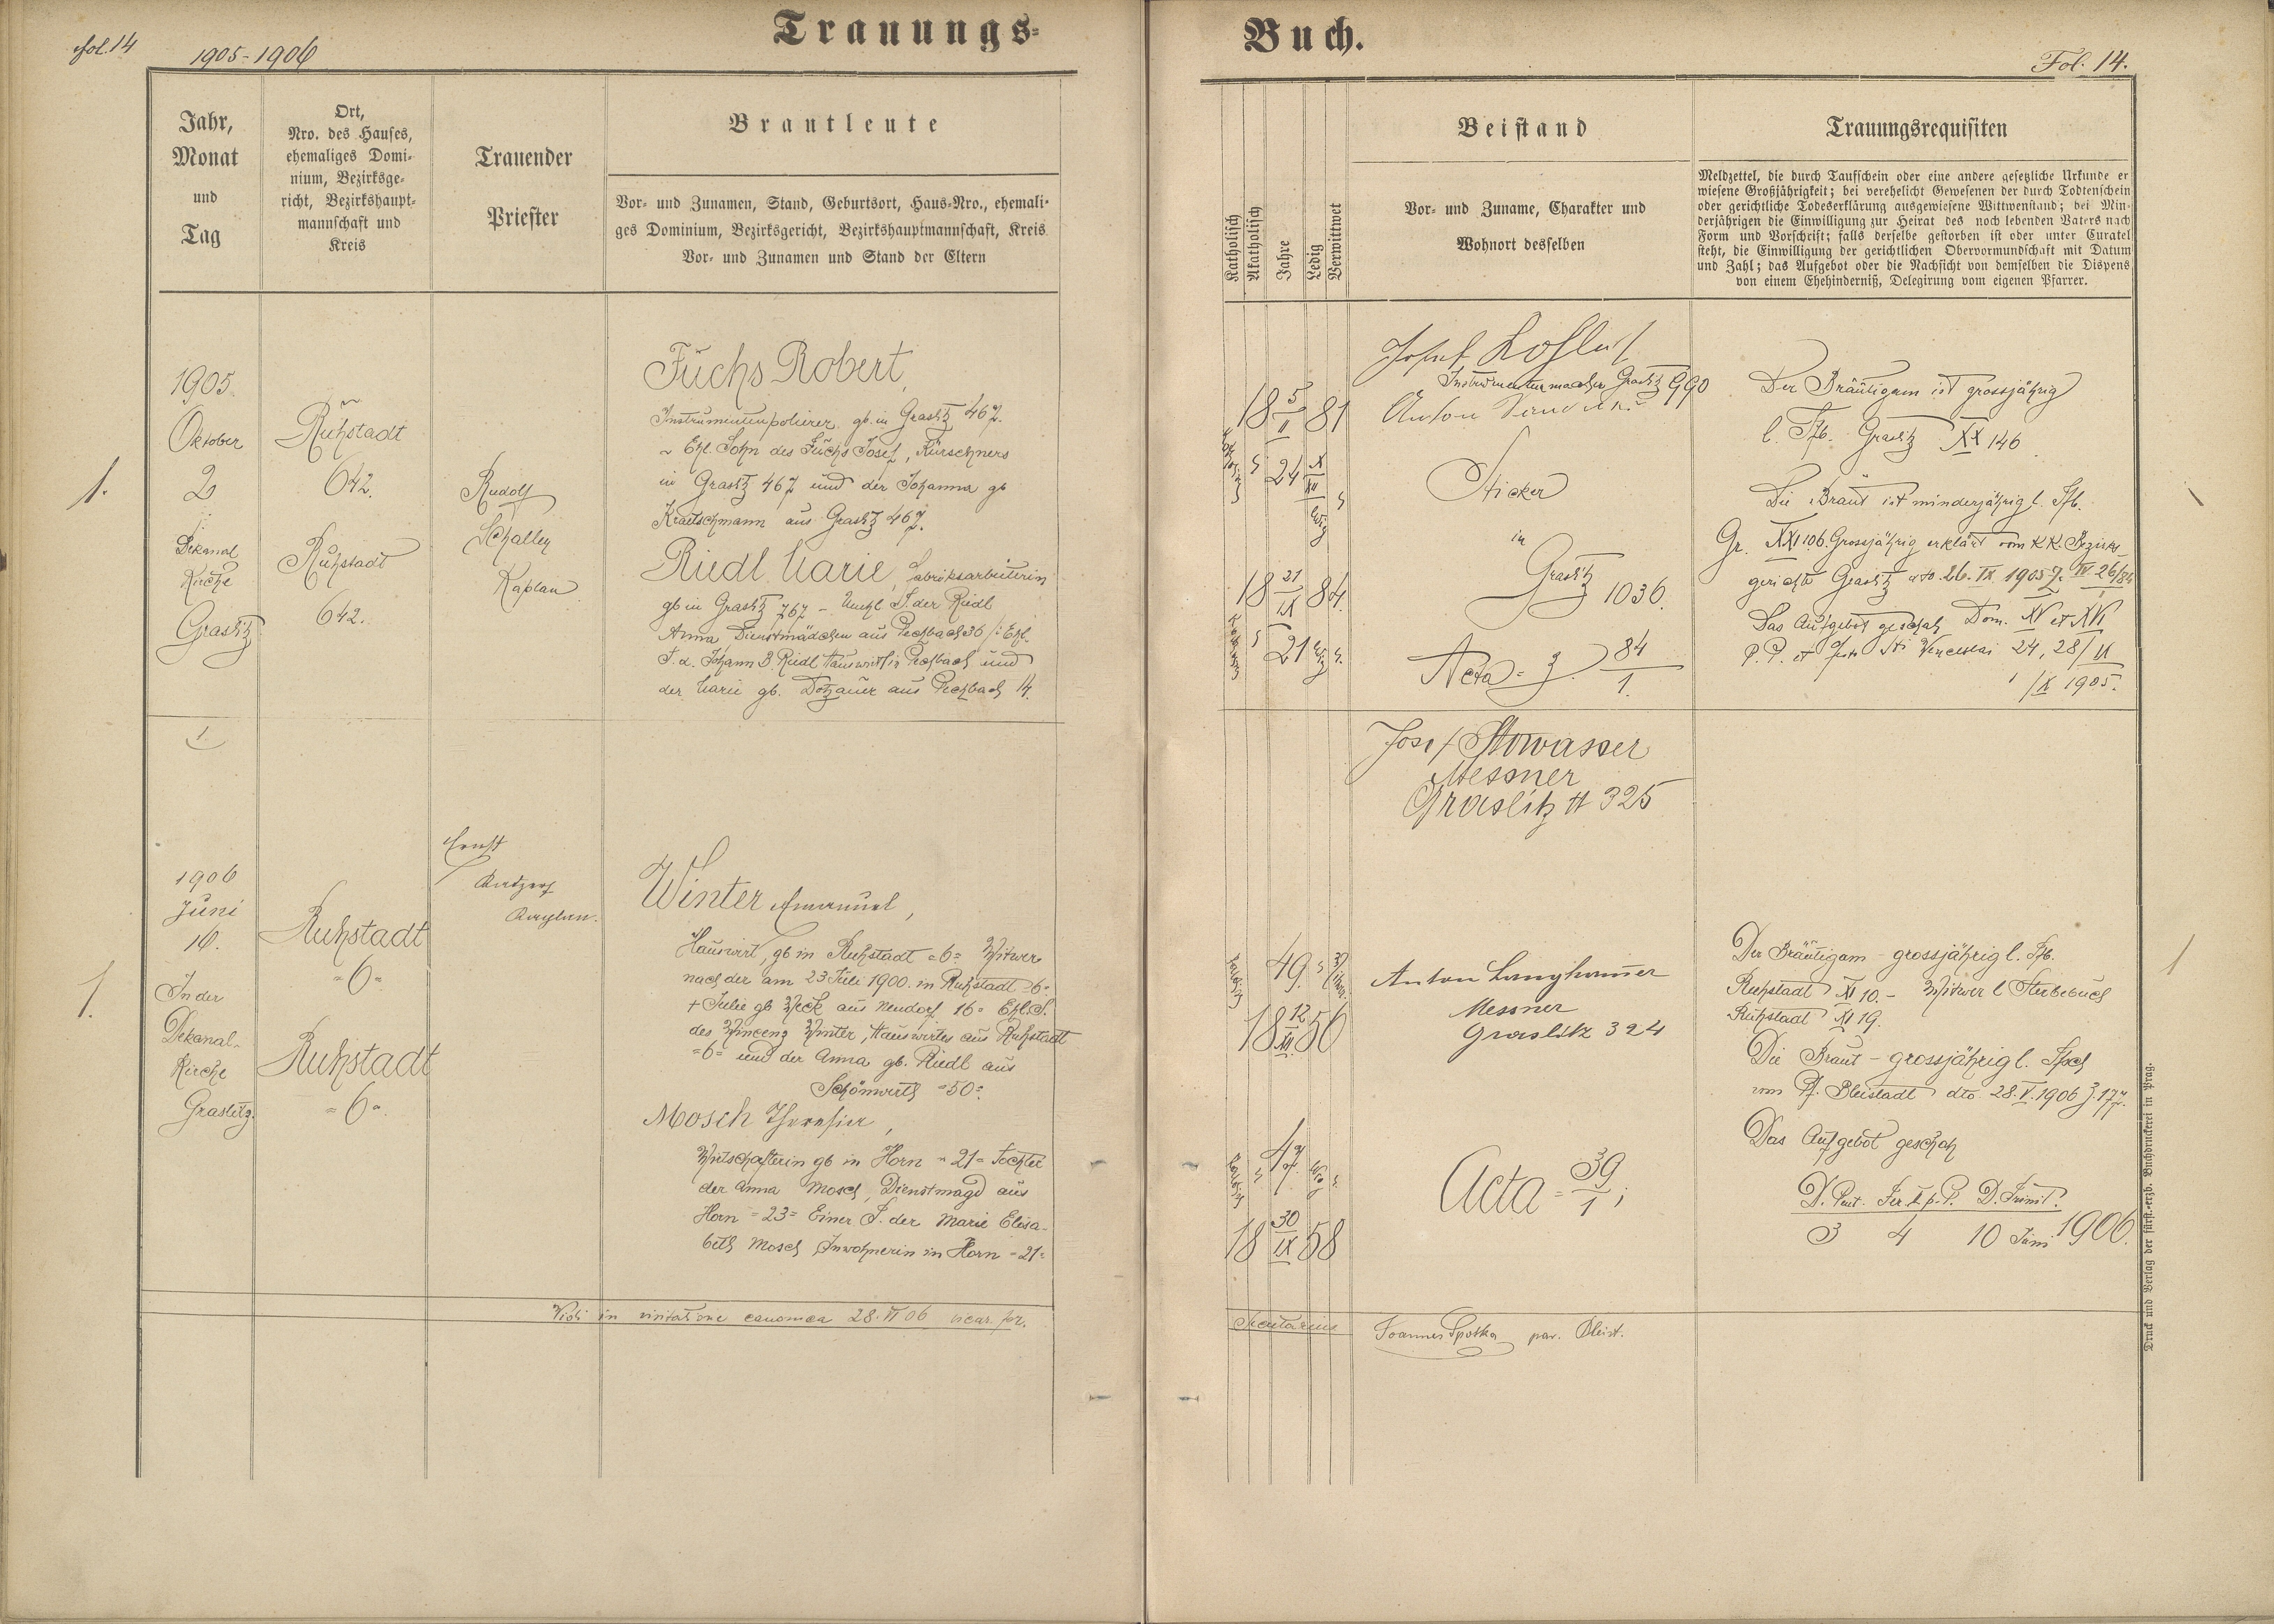 Trauungs-
Buch.
fol. 14
1905-1906
Fol. 14.
Jahr,
Monat
und
Tag
Ort,
Nro. des Hauses,
ehemaliges Domi-
nium, Bezirksge-
richt, Bezirkshaupt-
mannschaft und
Kreis
Trauender
Priester
Brautleute
Vor- und Zunamen, Stand, Geburtsort, Haus-Nro., ehemali-
ges Dominium, Bezirksgericht, Bezirkshauptmannschaft, Kreis
Vor- und Zunamen und Stand der Eltern
Katholisch
Akatholisch
Jahre
Ledig
Verwittwet
Beistand
Vor- und Zuname, Charakter und
Wohnort desselben
Trauungsrequisiten
Meldzettel, die durch Taufschein oder eine andere gesetzliche Urkunde er
wiesene Großjährigkeit; bei verehelicht Gewesenen der durch Todtenschein
oder gerichtliche Todeserklärung ausgewiesene Wittwenstand; bei Min-
derjährigen die Einwilligung zur Heirat des noch lebenden Vaters nach
Form und Vorschrift; falls derselbe gestorben ist oder unter Curatel
steht, die Einwilligung der gerichtlichen Obervormundschaft mit Datum
und Zahl; das Aufgebot oder die Nachsicht von demselben die Dispens
von einem Ehehinderniß, Delegirung vom eigenen Pfarrer.
1.
1905.
Oktober
2
Dekanal
Kirche
Graslitz
Ruhstadt
642.
Ruhstadt
642.
Rudolf
Schaller
Kaplan
Fuchs Robert,
Instrumentenpolierer gb. in Graslitz 467.
~ Ehl. Sohn des Fuchs Josef, Kürschners
in Graslitz 467 und der Johanna gb
Kraitschmann aus Graslitz 467.
Riedl Marie, Fabriksarbeiterin
gb in Graslitz 767 - Unehl T. der Riedl
Anna Dienstmädchen aus Pechbach 36 /: Ehl.
T. d. Johann B. Riedl Hauswirt in Pechbach und
der Marie gb. Dotzauer aus Pechbach 14.
18 5/II 81
24
18 21/IX 84
21
Josef
Instrumentenmacher Graslitz 990
Anton
Sticker
in
Graslitz 1036.
Acta = 3. 84/1.
Der Bräutigam ist grossjährig
l. Tfb. Graslitz XX 146
Die Braut ist minderjährig l. Tfb.
Gr. XXI 106. Grossjährig erklärt vom K.K. Bezirks-
gerichte Graslitz dto. 26. IX. 1905 IV 26/84
Das Aufgebot geschah Dom. XV et XVI
P. P. et Festo Sti Venceslai 24, 28/IX
1/X 1905.
1
Josef Stowasser
Messner
Graslitz # 325
1.
1906
Juni
16.
In der
Dekanal-
Kirche
Graslitz.
Ruhstadt
=6=
Ruhstadt
=6=
Ernst
Kaplan.
Winter Emanuel,
Hauswirt, gb in Ruhstadt =6= Witwer
nach der am 23 Juli 1900. in Ruhstadt =6=
+ Julie gb Weck aus Neudorf 16= Ehl. S.
des Winzenz Winter, Hauswirtes aus Ruhstadt
=6= und der Anna gb. Riedl aus
Schönwerth =50=
Mosch Theresia,
Wirtschafterin gb in Horn = 21= Tochter
der Anna Mosch, Dienstmagd aus
Horn =23= Einer T. der Marie Elisa-
beth Mosch Inwohnerin in Horn =21=
49.
18 12/XII 56
47.
18 30/IX 58
Anton Langhammer
Messner
Graslitz 324
Acta = 39/1;
Der Bräutigam - grossjährig l. Tfb.
Ruhstadt XI 10. - Witwer l Sterbebuch
Ruhstadt XI 19.
Die Braut - grossjährig l. Tfsch
vom Pf. Bleistadt dto. 28. V. 1906 Z. 177.
Das Aufgebot geschah
D. Pent. Fer. II p. P. D. Trinit.
3 4 10 Juni 1906.
1
Vidi in visitatione canonica 28. VI 06 vicar. for.
Secretarius
Joannes Spotka par. Bleist.
Druck und Verlag der fürst.-erzb. Buchdruckerei in Prag.